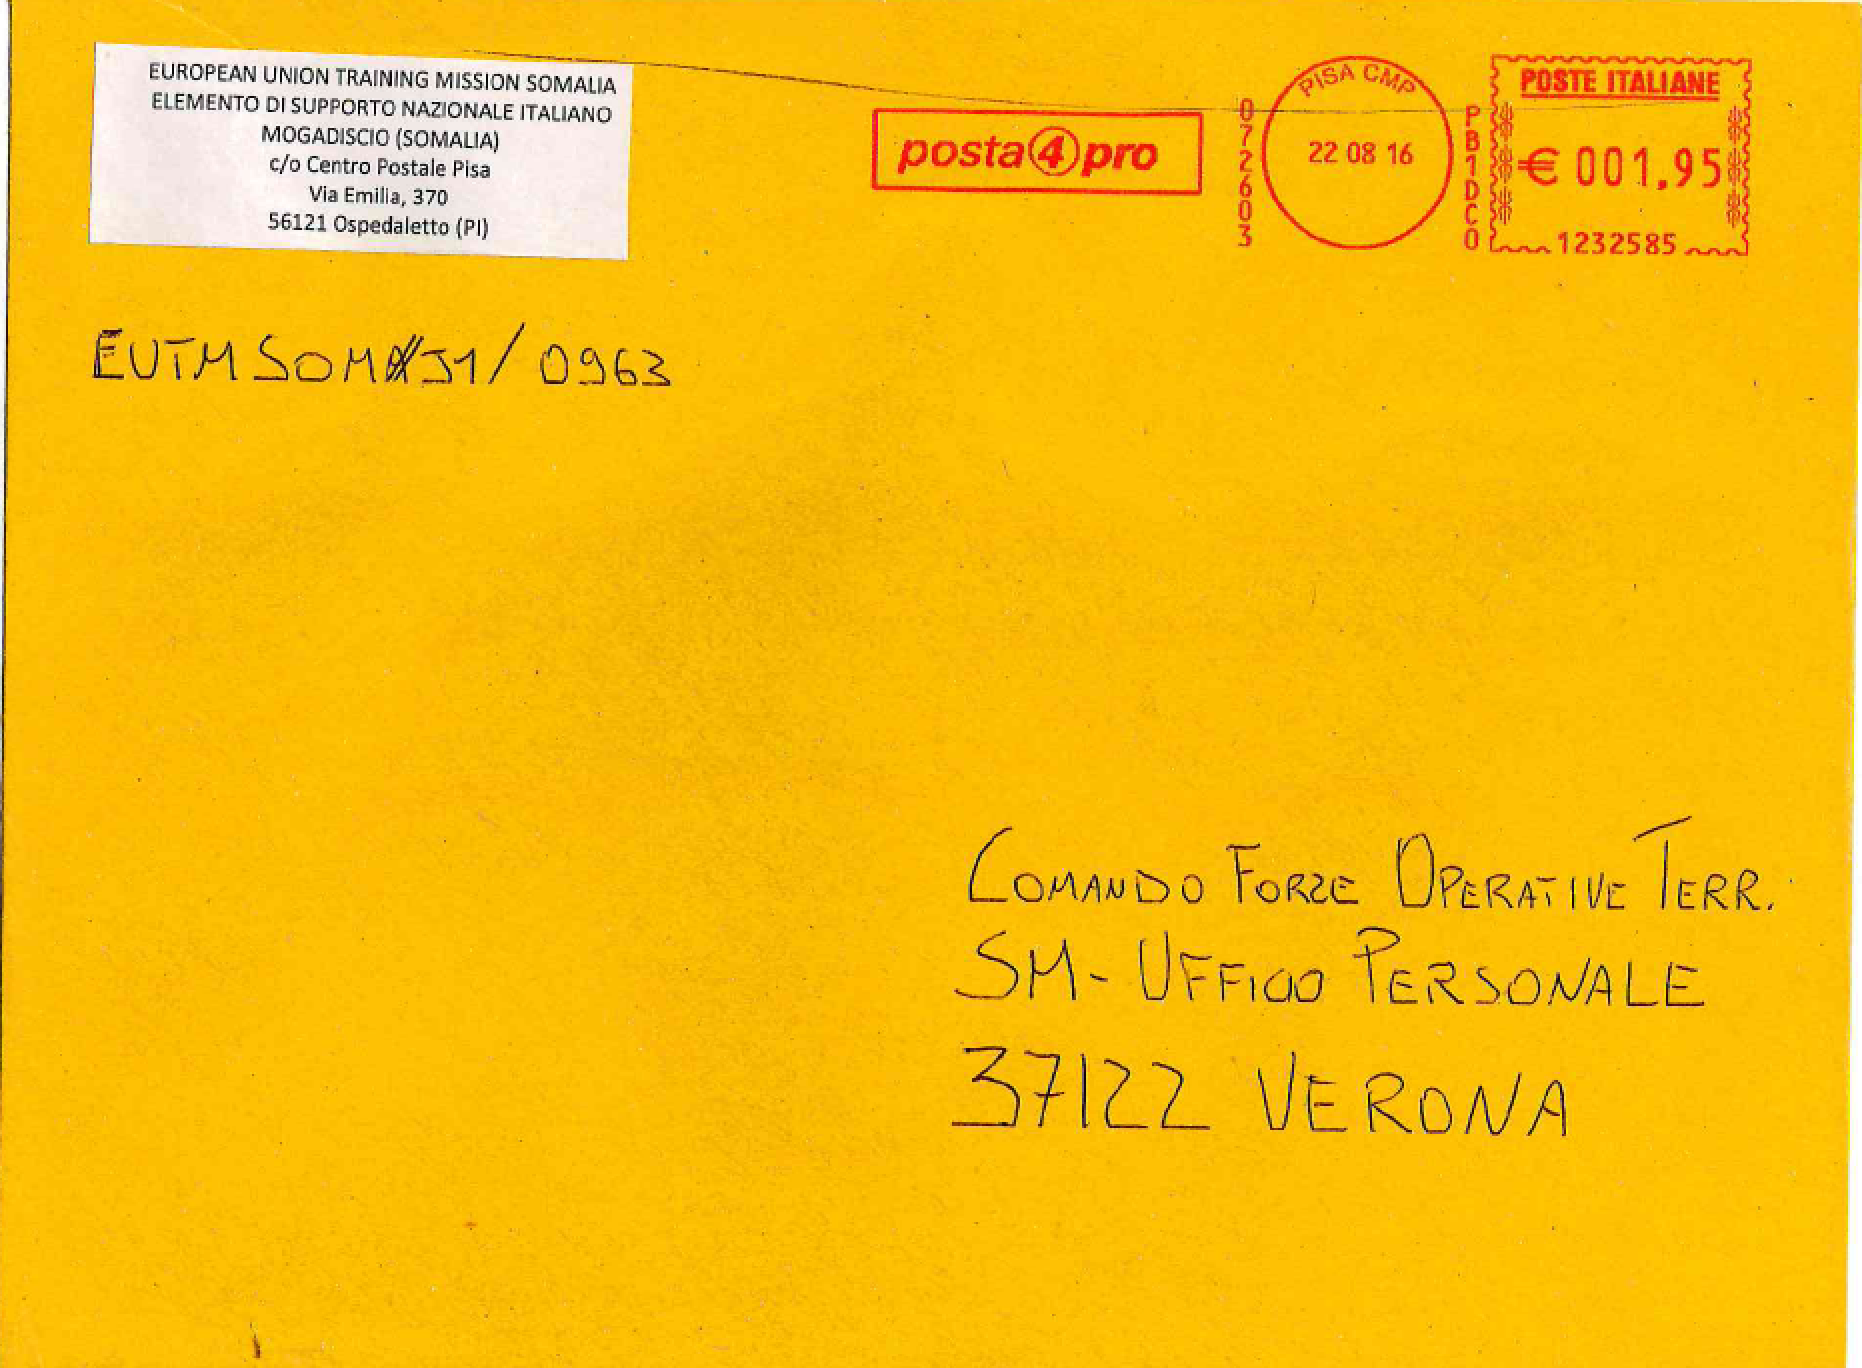 EUROPEAN UNION TRAINING MISSION SOMALIA
ELEMENTO DI SUPPORTO NAZIONALE ITALIANO
MOGADISCIO (SOMALIA)
c/o Centro Postale Pisa
Via Emilia, 370
56121 Ospedaletto (PI)
posta4pro
072603
PISA CMP
22 08 16
PB1DC0
POSTE ITALIANE
€ 001,95
1232585
EUTM SOM J1/0963
COMANDO FORZE OPERATIVE TERR.
SM-UFFICIO PERSONALE
37122 VERONA